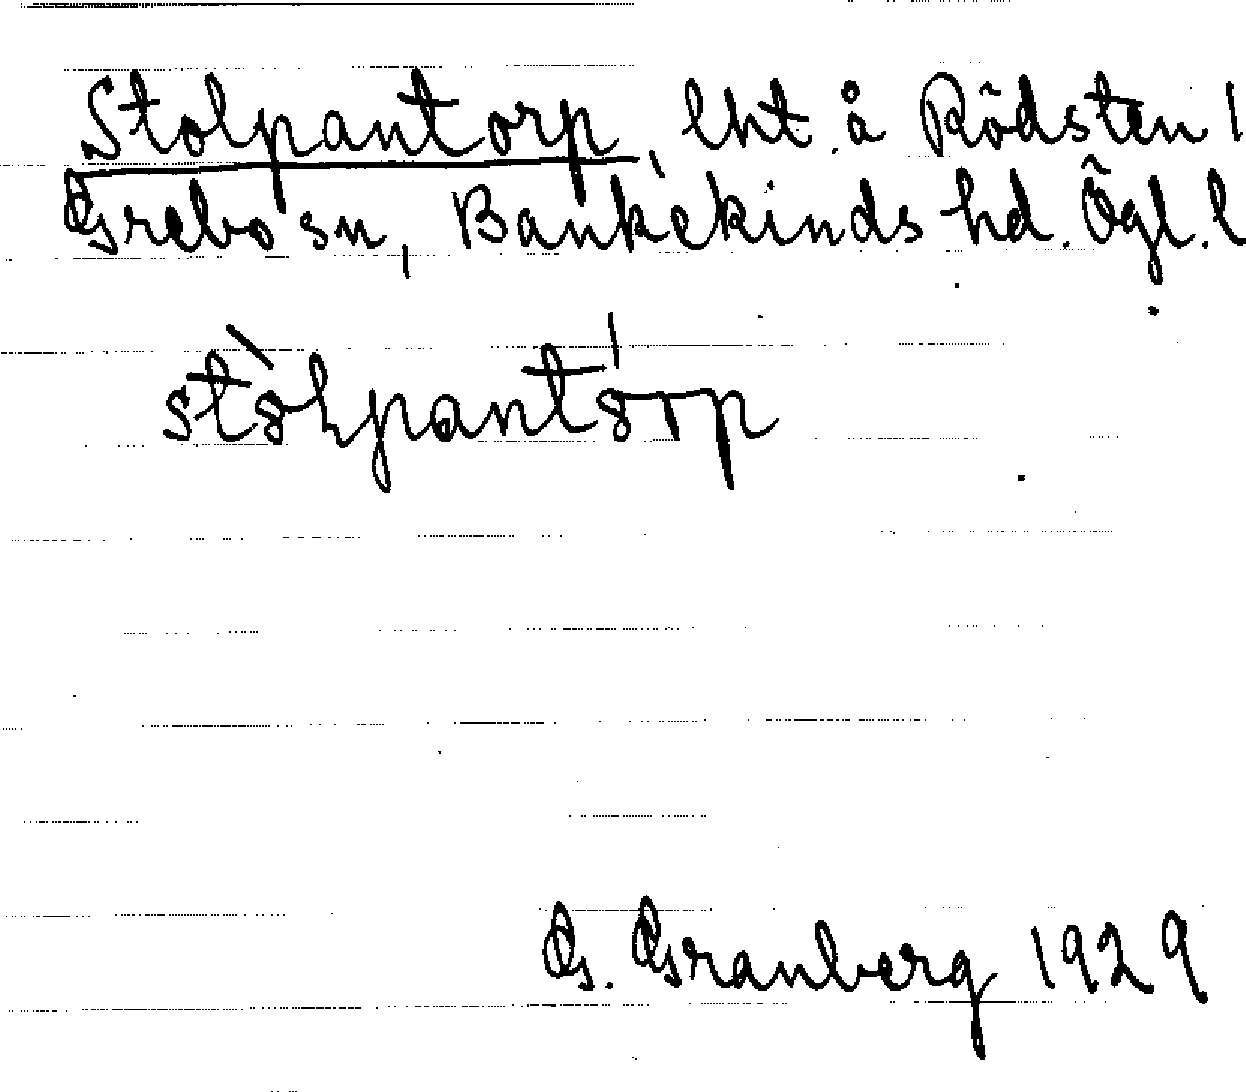 Stolpantorp, lht. å Rödsten 1
Grebo sn, Bankekinds hd. Ögl. l
G. Granberg 1929